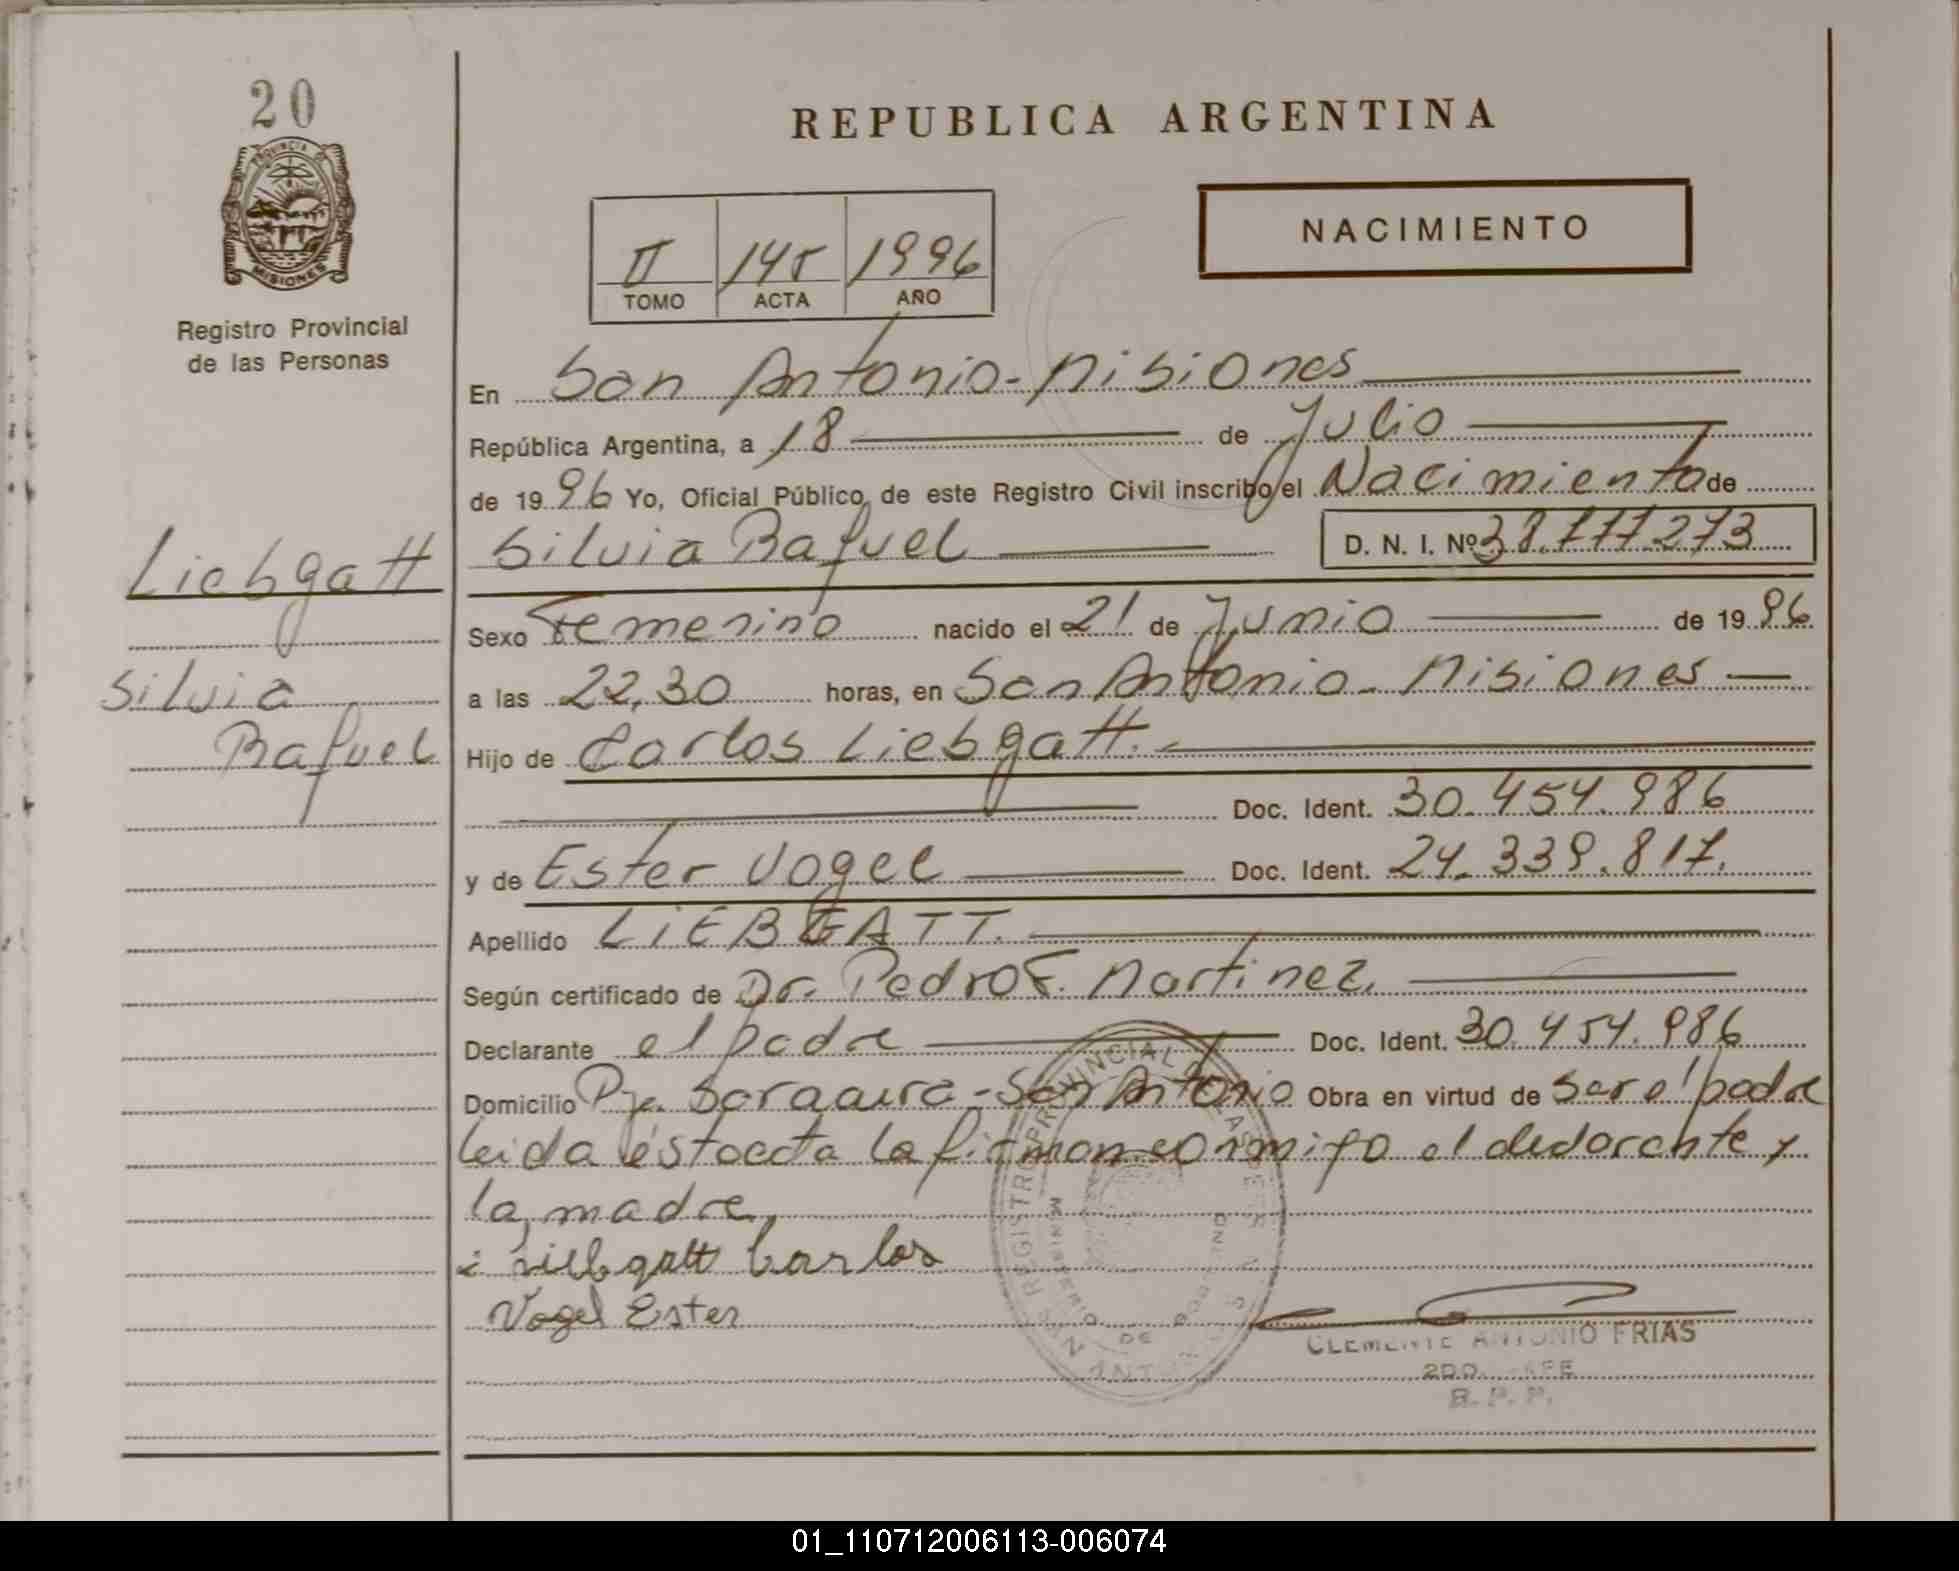 20
PROVINCIA DE
MISIONES
Registro Provincial
de las Personas
REPUBLICA ARGENTINA
NACIMIENTO
II 145 1996
TOMO ACTA AÑO
En San Antonio - Misiones
República Argentina, a 18 de Julio
de 1996 Yo, Oficial Público de este Registro Civil inscribo el Nacimiento de
Silvia Rafuel D. N. I. Nº 38.777.273
Liebgott
Silvia
Rafuel
Sexo Femenino nacido el 21 de Junio de 1996
a las 22,30 horas, en San Antonio - Misiones
Hijo de Carlos Liebgatt.
Doc. Ident. 30.454.986
y de Ester Vogel Doc. Ident. 24.339.817.
Apellido LIEBGATT.
Según certificado de Dr. Pedro F. Martinez.
Declarante el padre Doc. Ident. 30.454.986
Domicilio Pje. - San Antonio Obra en virtud de ser el padre
leida ésta acta la firman conmigo el declarante y
la madre,
Carlos
Vogel Ester
REGISTRO PROVINCIAL DE LAS PERSONAS
MINISTERIO DE GOBIERNO
SAN ANTONIO
CLEMENTE ANTONIO FRIAS
2DO. JEFE
R. P. P.
01_110712006113-006074